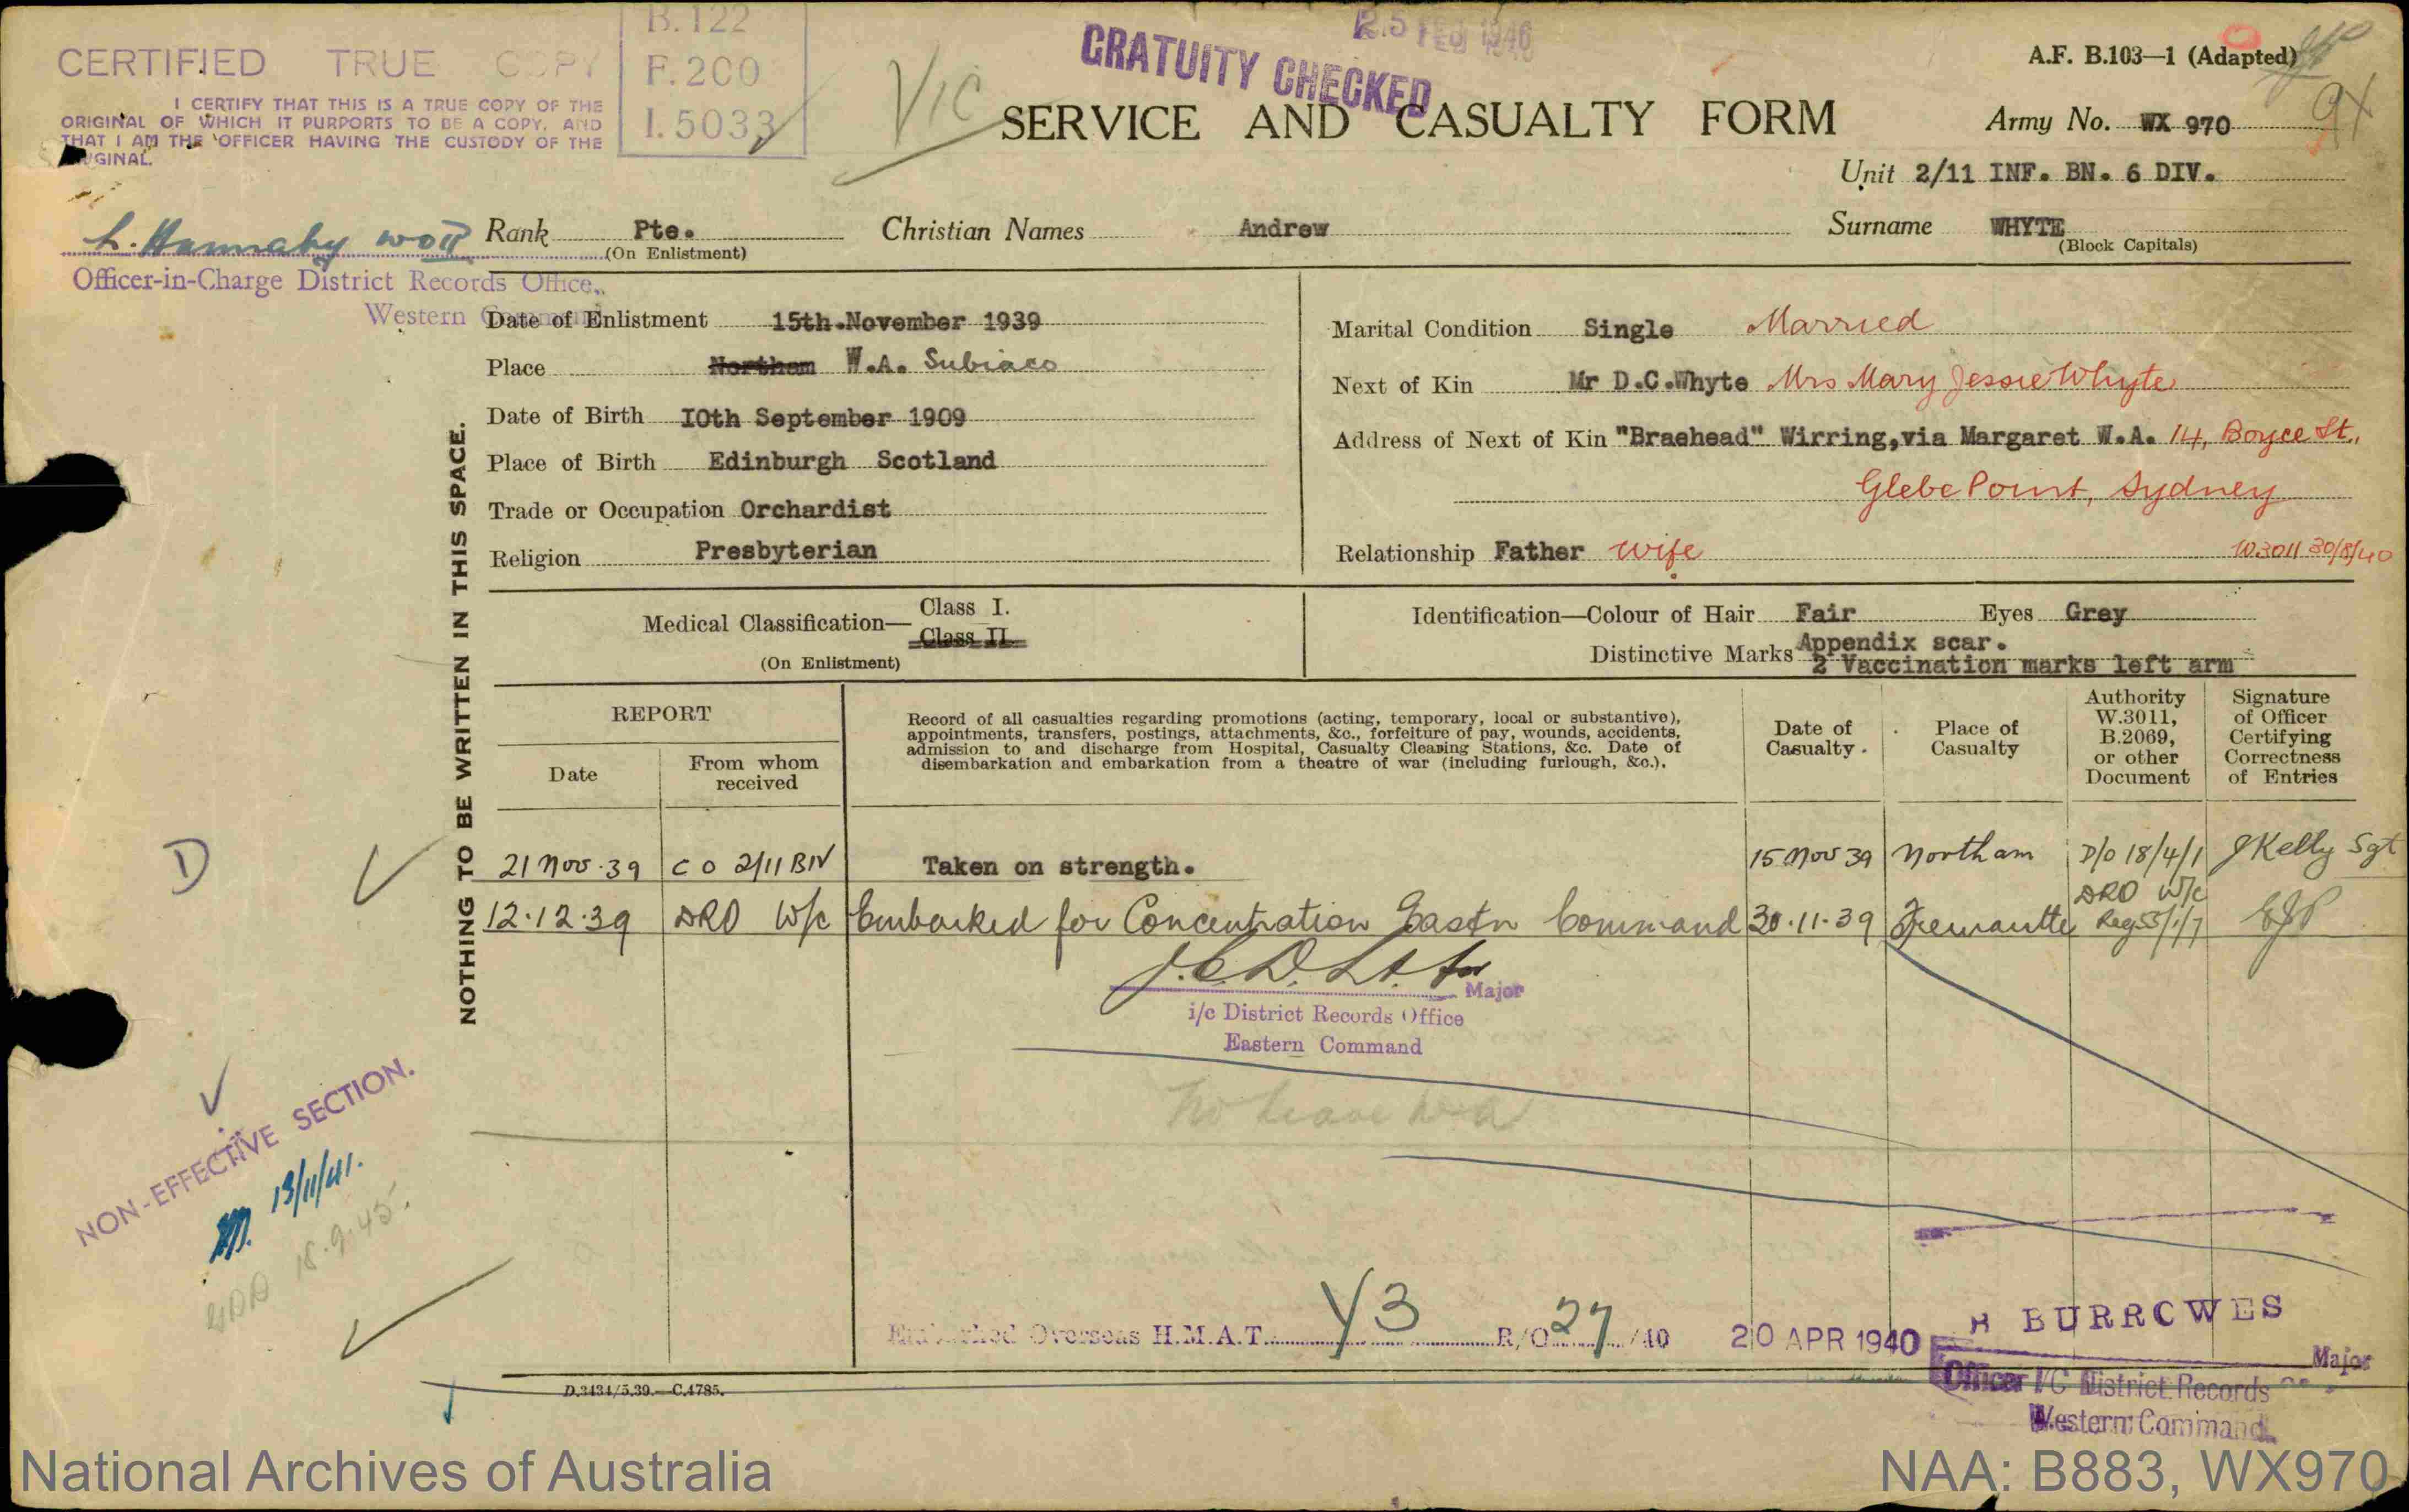 CERTIFIED TRUE COPY
I CERTIFY THAT THIS IS A TRUE COPY OF THE
ORIGINAL OF WHICH IT PURPORTS TO BE A COPY, AND
THAT I AM THE OFFICER HAVING THE CUSTODY OF THE
GINAL.
B.122
F.200
I.5033
VIC
25 FEB 1946
GRATUITY CHECKED
A.F. B.103—1 (Adapted)
9X
SERVICE AND CASUALTY FORM
Army No. WX 970
Unit 2/11 INF. BN. 6 DIV.
L. Hannaby WOII
Rank Pte. Christian Names Andrew Surname WHYTE
(On Enlistment) (Block Capitals)
Officer-in-Charge District Records Office,
Western Command
Date of Enlistment 15th.November 1939
Place Northam W.A. Subiaco
Date of Birth I0th September 1909
Place of Birth Edinburgh Scotland
Trade or Occupation Orchardist
Religion Presbyterian
Marital Condition Single Married
Next of Kin Mr D.C.Whyte Mrs Mary Jessie Whyte
Address of Next of Kin "Braehead" Wirring,via Margaret W.A. 14, Boyce St.,
Glebe Point, Sydney
Relationship Father wife W3011 30/8/40
NOTHING TO BE WRITTEN IN THIS SPACE.
Medical Classification— Class I.
Class II
(On Enlistment)
Identification—Colour of Hair Fair Eyes Grey
Distinctive Marks Appendix scar.
2 Vaccination marks left arm
REPORT
Date
From whom received
Record of all casualties regarding promotions (acting, temporary, local or substantive),
appointments, transfers, postings, attachments, &c., forfeiture of pay, wounds, accidents,
admission to and discharge from Hospital, Casualty Clearing Stations, &c. Date of
disembarkation and embarkation from a theatre of war (including furlough, &c.).
Date of Casualty
Place of Casualty
Authority W.3011, B.2069, or other Document
Signature of Officer Certifying Correctness of Entries
21 Nov. 39 C O 2/11 BN Taken on strength. 15 Nov 39 Northam D/O 18/4/1 J Kelly Sgt
12.12.39 DRO W/c Embarked for Concentration Eastn Command 30.11.39 Fremantle DRO W/c Reg 55/1/7
Major
i/c District Records Office
Eastern Command
No leave W.A
D
NON-EFFECTIVE SECTION.
13/11/41.
18.9.45.
Embarked Overseas H.M.A.T. Y3 R/O 27 /40 20 APR 1940
H BURROWES
Major
Officer I/C District Records
Western Command
D.3434/5.39.—C.4785.
National Archives of Australia
NAA: B883, WX970